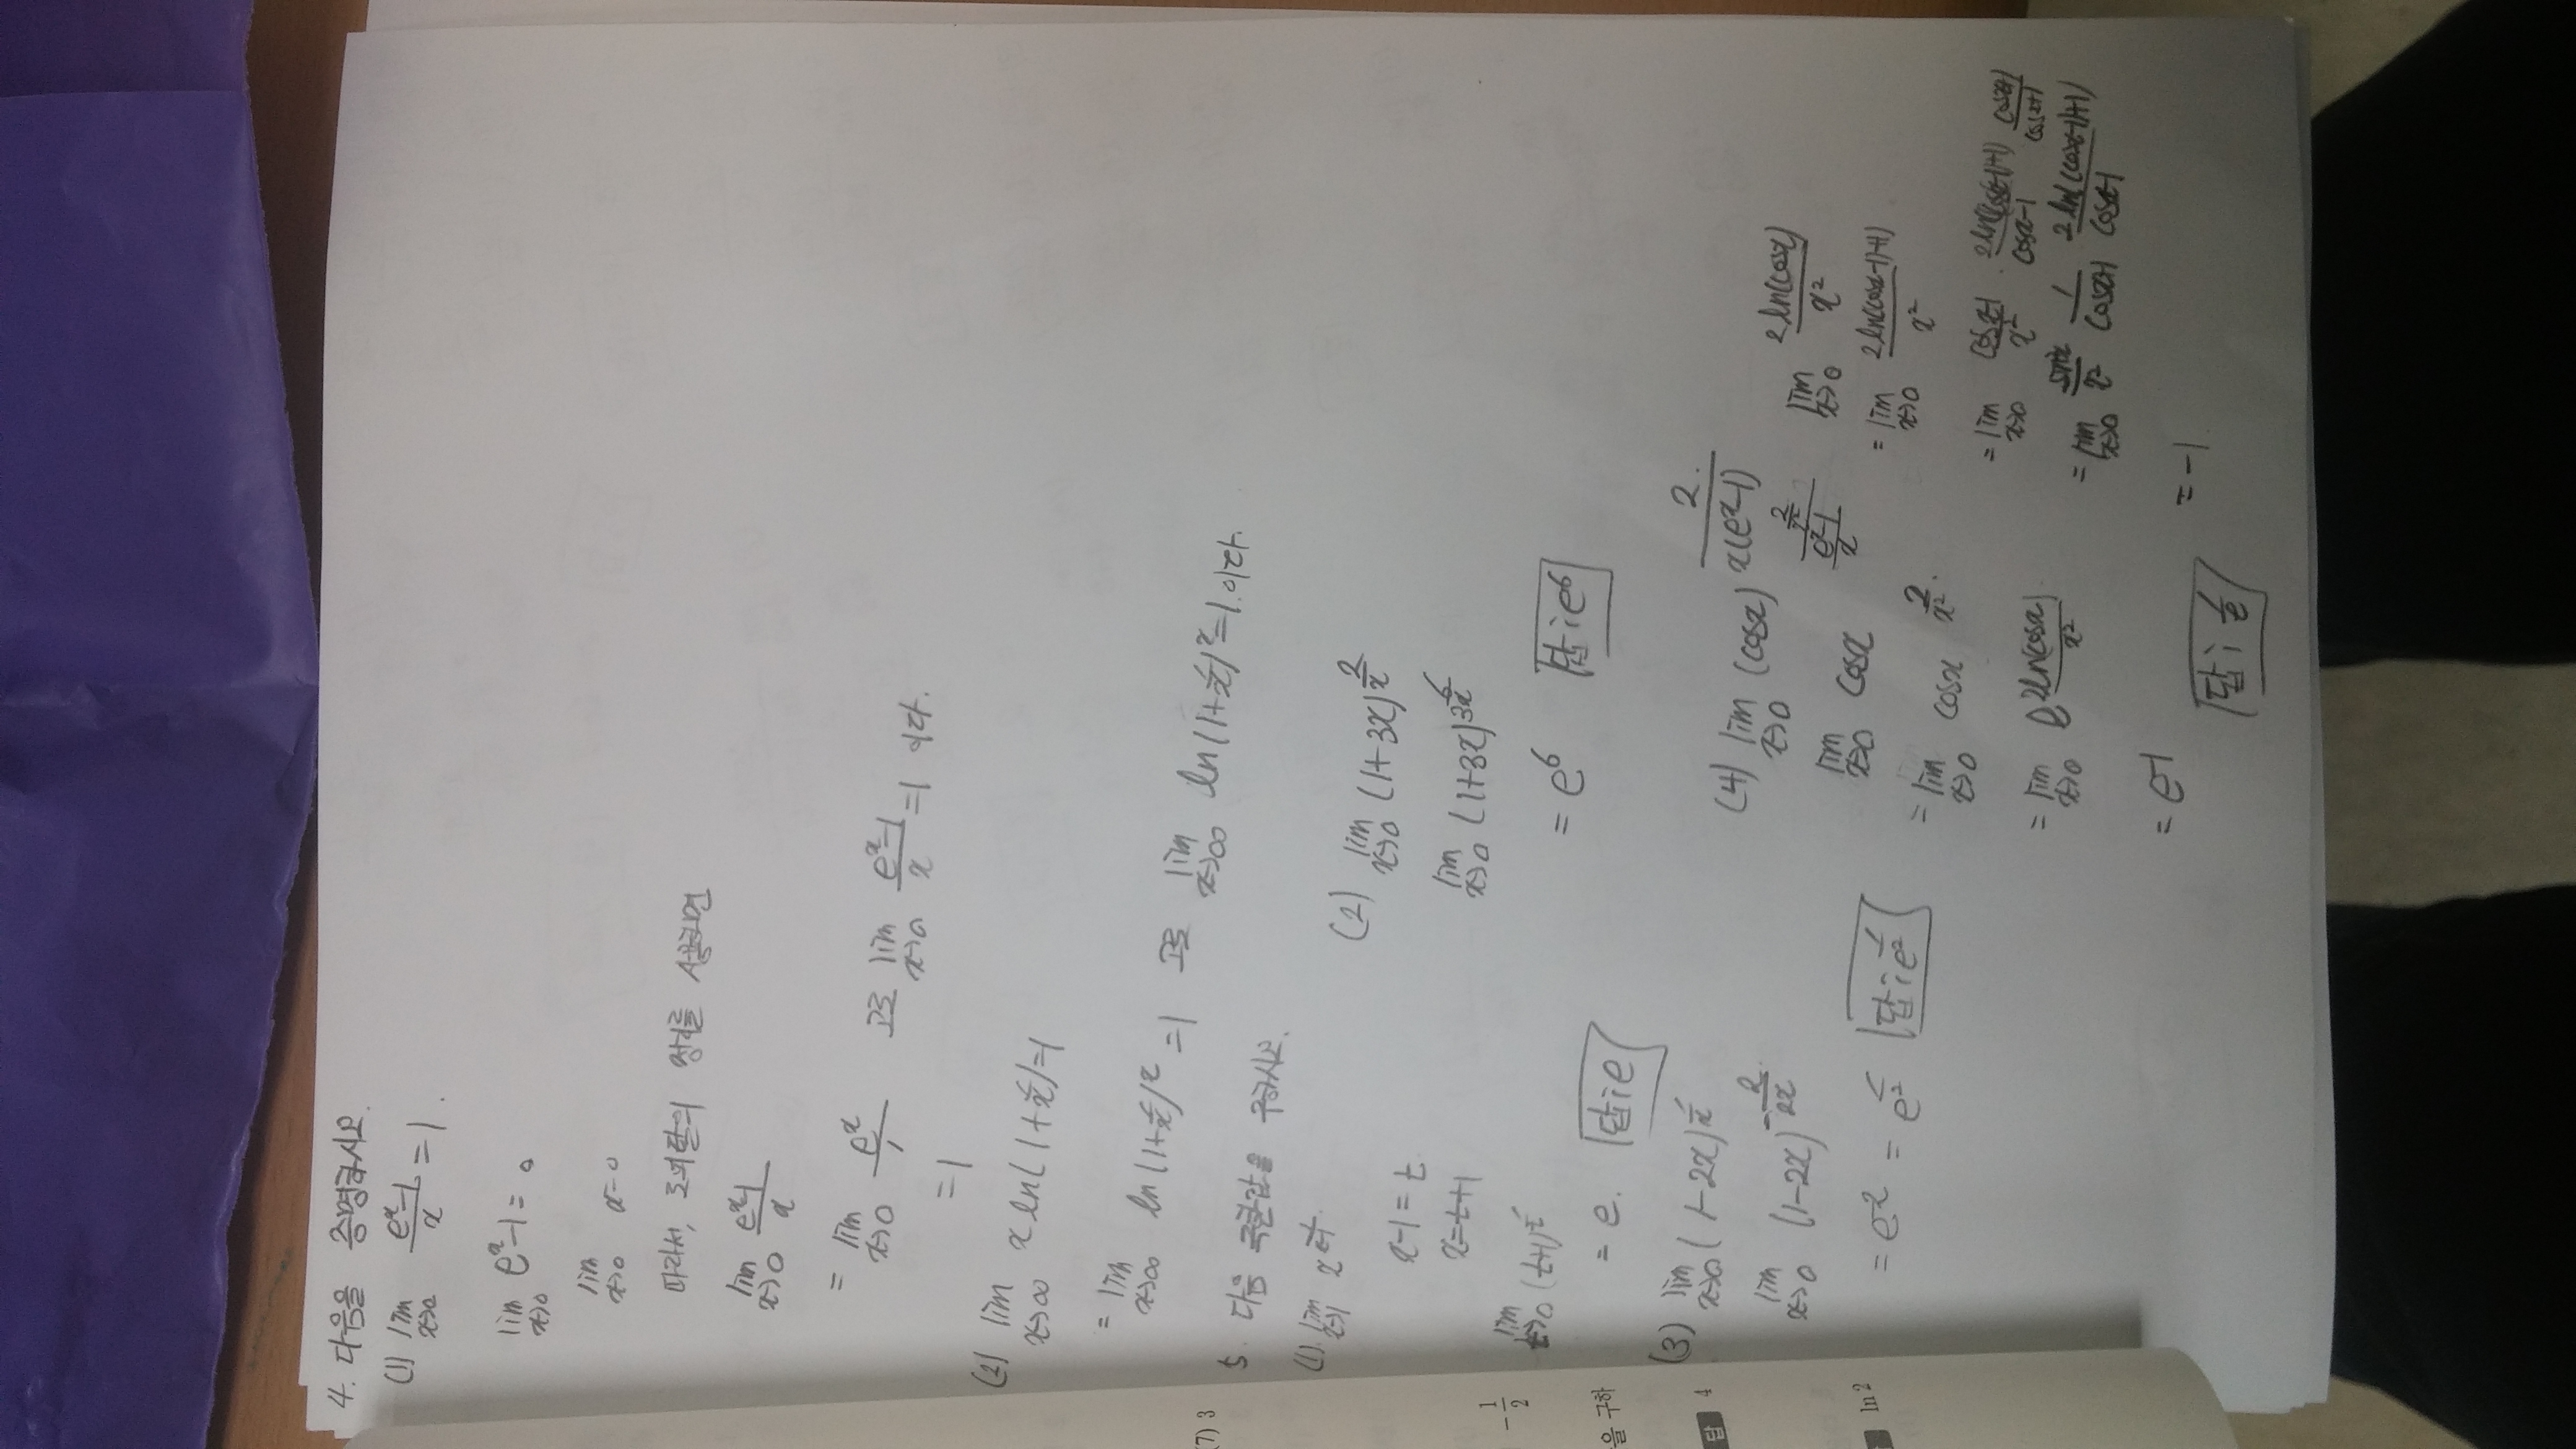 4. 다음을 증명하시오.
(1) lim x→0 (e^x-1)/x = 1.
lim x→0 e^x-1 = 0
lim x→0 x=0
따라서, 로피탈의 정리를 사용하면
lim x→0 (e^x-1)/x
= lim x→0 e^x/1 고로 lim x→0 (e^x-1)/x =1 이다.
=1
(2) lim x→∞ x ln(1+1/x)=1
= lim x→∞ ln(1+1/x)^x =1 고로 lim x→∞ ln(1+1/x)^x=1.이다.
5. 다음 극한값을 구하시오.
(1). lim x→1 x^(1/(x-1)).
x-1=t
x=t+1
lim t→0 (t+1)^(1/t)
= e. 답 : e
(2) lim x→0 (1+3x)^(2/x)
lim x→0 (1+3x)^(6/3x)
= e^6 답 : e^6
(3) lim x→0 (1-2x)^(1/x)
lim x→0 (1-2x)^(-2/2x)
= e^-2 = 1/e^2 답 : 1/e^2
(4) lim x→0 (cosx)^(2/(x(e^x-1)))
lim x→0 cosx^((2/x^2)/((e^x-1)/x))
= lim x→0 cosx^(2/x^2).
= lim x→0 e^(2ln(cosx)/x^2)
= e^-1
답 : 1/e
lim x→0 2ln(cosx)/x^2
= lim x→0 2ln((cosx-1)+1)/x^2
= lim x→0 (cosx-1)/x^2 · 2ln((cosx-1)+1)/(cosx-1) (cosx+1)/(cosx+1)
= lim x→0 1/(cosx+1) 2ln((cosx-1)+1)/(cosx-1)
= -1
(7) 3
-1/2
을 구하
답 4
ln 2